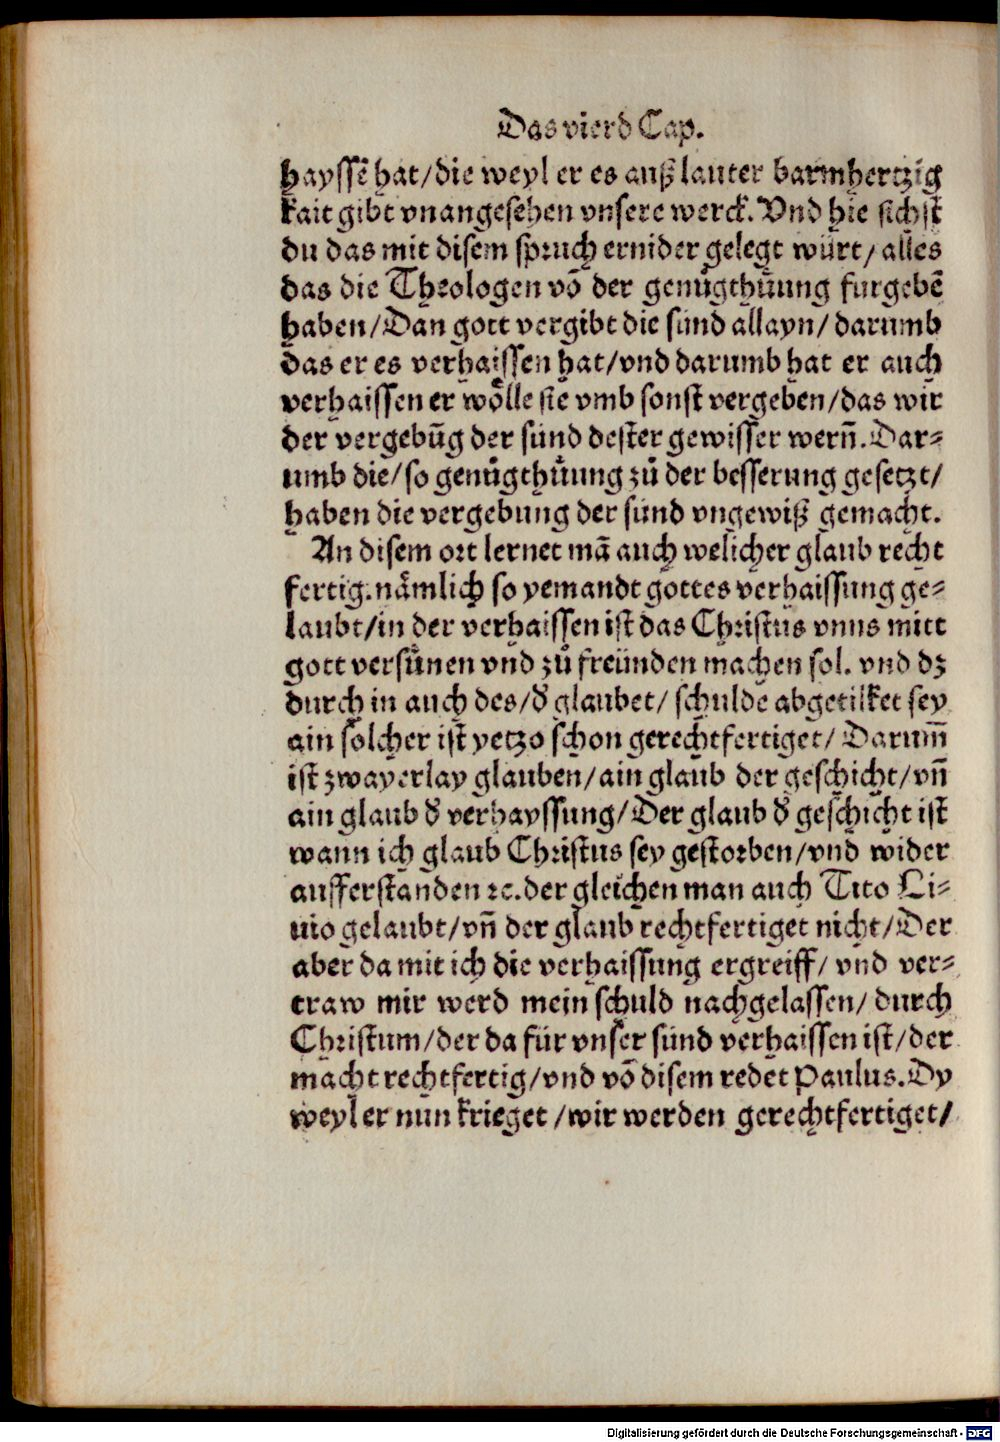 Das vierd Cap.
hayssē hat/die weyl er es auß lauter barmhertzig
kait gibt vnangesehen vnsere werck. Vnd hie sichst
du das mit disem spruch ernider gelegt würt/ alles
das die Theologen vō der genůgthůung furgebē
haben/Dan gott vergibt die sünd allayn/ darumb
das er es verhaissen hat/vnd darumb hat er auch
verhaissen er wölle sie vmb sonst vergeben/das wir
der vergebūg der sünd dester gewisser wern̄. Dar-
umb die/so genůgthůung zů der besserung gesetzt/
haben die vergebung der sünd vngewiß gemacht.
An disem ort lernet mā auch welicher glaub recht
fertig. nämlich so yemandt gottes verhaissung ge-
laubt/in der verhaissen ist das Christus vnns mitt
gott versünen vnd zů freünden machen sol. vnd dz
durch in auch des/d̓ glaubet/ schulde abgetilket sey
ain sölcher ist yetzo schon gerechtfertiget/ Darum̄
ist zwayerlay glauben/ain glaub der geschicht/vn̄
ain glaub d̓ verhayssung/Der glaub d̓ geschicht ist
wann ich glaub Christus sey gestorben/vnd wider
aufferstanden ꝛc. der gleichen man auch Tito Li-
uio gelaubt/vn̄ der glaub rechtfertiget nicht/Der
aber da mit ich die verhaissung ergreiff/ vnd ver-
traw mir werd mein schuld nachgelassen/ durch
Christum/der da für vnser sünd verhaissen ist/der
macht rechtfertig/vnd vō disem redet Paulus. Dy
weyl er nun krieget /wir werden gerechtfertiget/
Digitalisierung gefördert durch die Deutsche Forschungsgemeinschaft - DFG